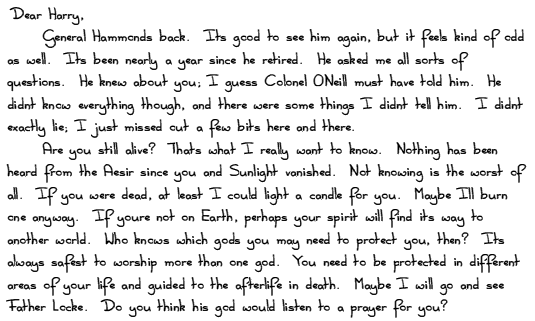 Dear Harry,
General Hammonds back. Its good to see him again, but it feels kind of odd
as well. Its been nearly a year since he retired. He asked me all sorts of
questions. He knew about you; I guess Colonel ONeill must have told him. He
didnt know everything though, and there were some things I didnt tell him. I didnt
exactly lie; I just missed out a few bits here and there.
Are you still alive? Thats what I really want to know. Nothing has been
heard from the Aesir since you and Sunlight vanished. Not knowing is the worst of
all. If you were dead, at least I could light a candle for you. Maybe Ill burn
one anyway. If youre not on Earth, perhaps your spirit will find its way to
another world. Who knows which gods you may need to protect you, then? Its
always safest to worship more than one god. You need to be protected in different
areas of your life and guided to the afterlife in death. Maybe I will go and see
Father Locke. Do you think his god would listen to a prayer for you?